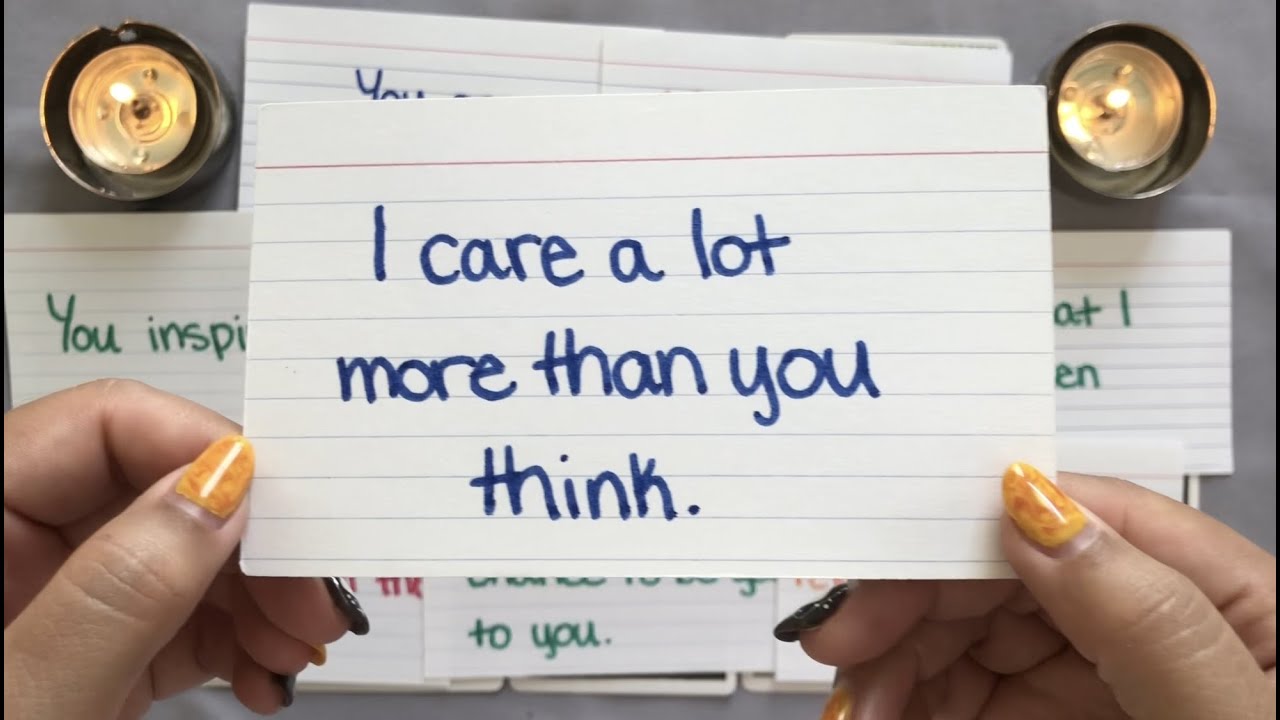 You
I care a lot
more than you
think.
You
at I
en
to be
to you.